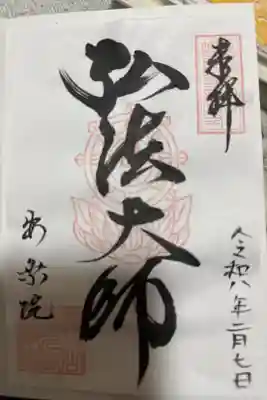 奉拝
弘法大師
令和八年二月七日
安楽院